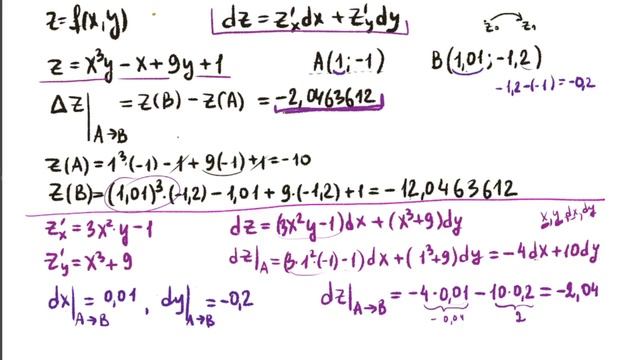 z=f(x,y) dz = z'ₓdx + z'ᵧdy z₀ z₁
z = x³y - x + 9y + 1 A(1;-1) B(1,01;-1,2)
-1,2-(-1)=-0,2
Δz|A→B = z(B) - z(A) = -2,0463612
z(A) = 1³(-1) - 1 + 9(-1) + 1 = -10
z(B) = (1,01)³·(-1,2) - 1,01 + 9·(-1,2) + 1 = -12,0463612
z'ₓ = 3x²·y - 1 dz = (3x²y-1)dx + (x³+9)dy x,y,dx,dy
z'ᵧ = x³ + 9 dz|A = (3·1²(-1)-1)dx + (1³+9)dy = -4dx + 10dy
dx|A→B = 0,01 , dy|A→B = -0,2 dz|A→B = -4·0,01 - 10·0,2 = -2,04
-0,04 2